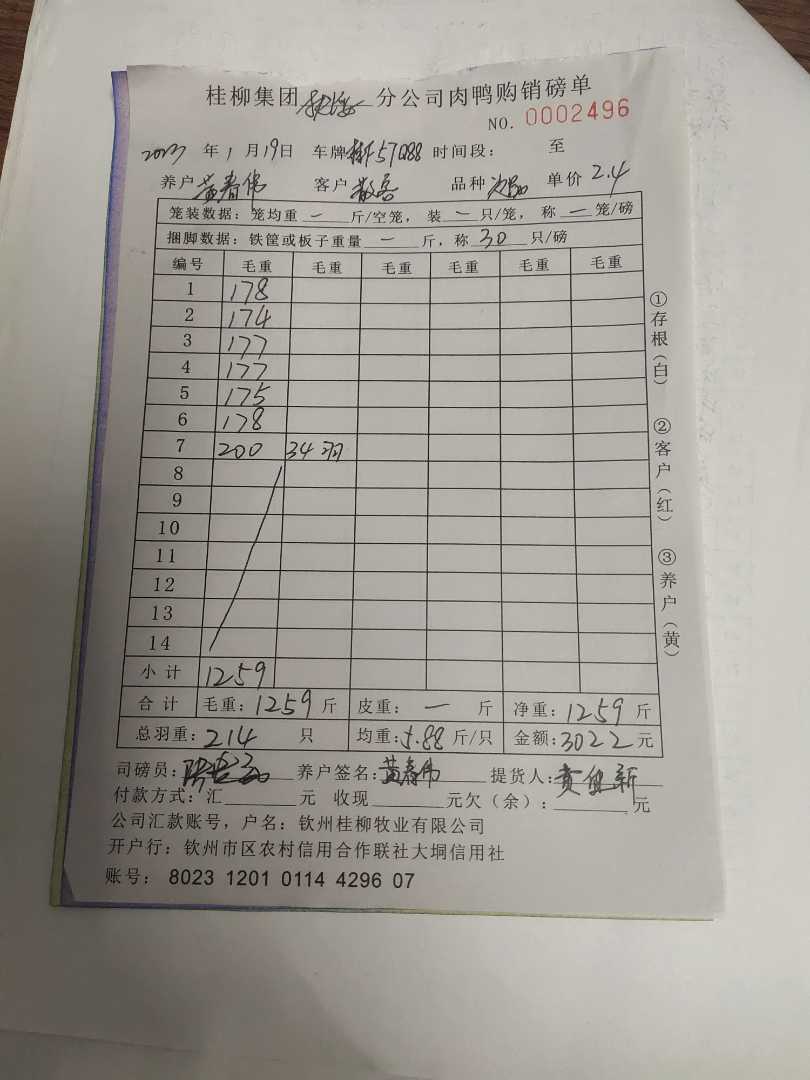 桂柳集团 分公司肉鸭购销磅单
NO. 0002496
2023 年 1 月 19日 车牌 57Q88 时间段： 至
养户 黄春伟 客户 散客 品种 次品 单价 2.4
笼装数据：笼均重 一 斤/空笼，装 一 只/笼，称 一 笼/磅
捆脚数据：铁筐或板子重量 一 斤，称 30 只/磅
编号 毛重 毛重 毛重 毛重 毛重 毛重
1 178
2 174
3 177
4 177
5 175
6 178
7 200 34羽
8
9
10
11
12
13
14
小计 1259
合计 毛重：1259 斤 皮重： 一 斤 净重：1259 斤
总羽重：214 只 均重：5.88 斤/只 金额：3022 元
司磅员： 养户签名：黄春伟 提货人：黄 新
付款方式：汇 元 收现 元欠（余）： 元
公司汇款账号，户名：钦州桂柳牧业有限公司
开户行：钦州市区农村信用合作联社大垌信用社
账号： 8023 1201 0114 4296 07
①存根（白）
②客户（红）
③养户（黄）